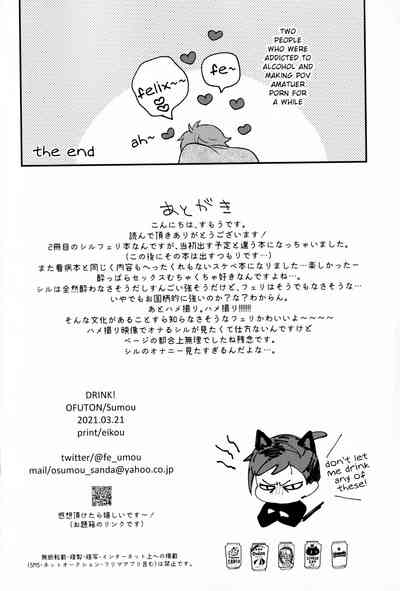 TWO
PEOPLE
WHO WERE
ADDICTED TO
ALCOHOL AND
MAKING POV
AMATUER
PORN FOR
A WHILE
fe~
felix~~
ah~
the end
あとがき
こんにちは、すもうです。
読んで頂きありがとうございます!
2冊目のシルフェリ本なんですが、当初出す予定と違う本になっちゃいました。
(この後にその本は出すつもりです…)
また看病本と同じく内容もへったくれもないスケベ本になりました…楽しかったー
酔っぱらセックスむちゃくちゃ好きなんですよね…。
シルは全然酔わなさそうだしすんごい強そうだけど、フェリはそうでもなさそうな…
いやでもお国柄的に強いのか?な?わからん。
あとハメ撮り。ハメ撮り!!!!!!
そんな文化があることすら知らなさそうなフェリかわいいよ〜〜〜〜
ハメ撮り映像でオナるシルが見たくて仕方ないんですけど
ページの都合上無理でしたね残念です。
シルのオナニー見たすぎるんだよな…。
DRINK!
OFUTON/Sumou
2021.03.21
print/eikou
twitter/@fe_umou
mail/osumou_sanda@yahoo.co.jp
don't let
me drink
any of
these!
感想頂けたら嬉しいですー!
(お題箱のリンクです)
無断転載・複製・複写・インターネット上への掲載
(SMS・ネットオークション・フリマアプリ含む)は禁止です。